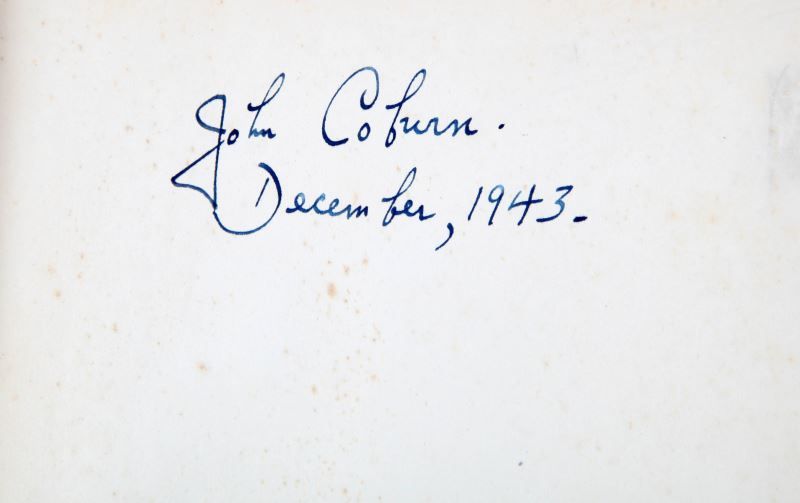 John Coburn.
December, 1943.